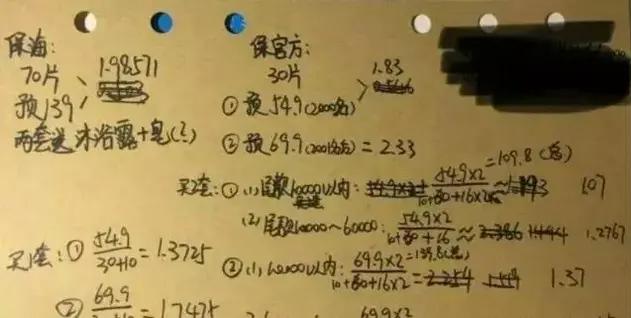 保海:
70片 1.98571
预139
两套送沐浴露+皂(?)
保官方:
30片 1.83
① 预54.9(2000名)
② 预69.9(2001名后) = 2.33
买2套: ① (1) 尾款10000以内: 54.9×2 / 10+80+16×2 ≈ 1.07
=109.8(总)
(2) 尾款10000~60000: 54.9×2 / 10+80+16 ≈ 1.2767
② (1) 以内: 69.9×2 / 10+80+16×2 = 1.37
=139.8(总)
买1套: ① 54.9 / 30+10 = 1.3725
② 69.9 = 1.7475
69.9×2